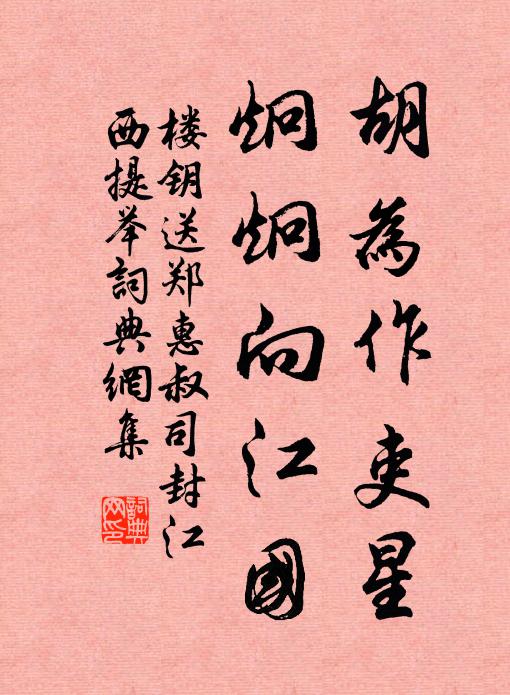 胡為作吏星
炯炯向江國
楼钥送郑惠叔司封江
西提举詞典網集
詞典
网印